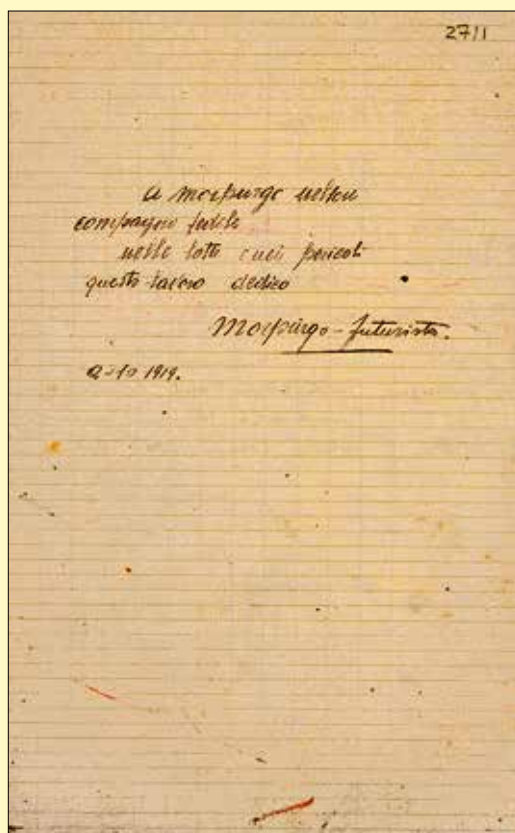 27/1
a Morpurgo Nelson
compagno fedele
nelle lotte e nei pericoli
questo lavoro dedico
Morpurgo-futurista.
1919.